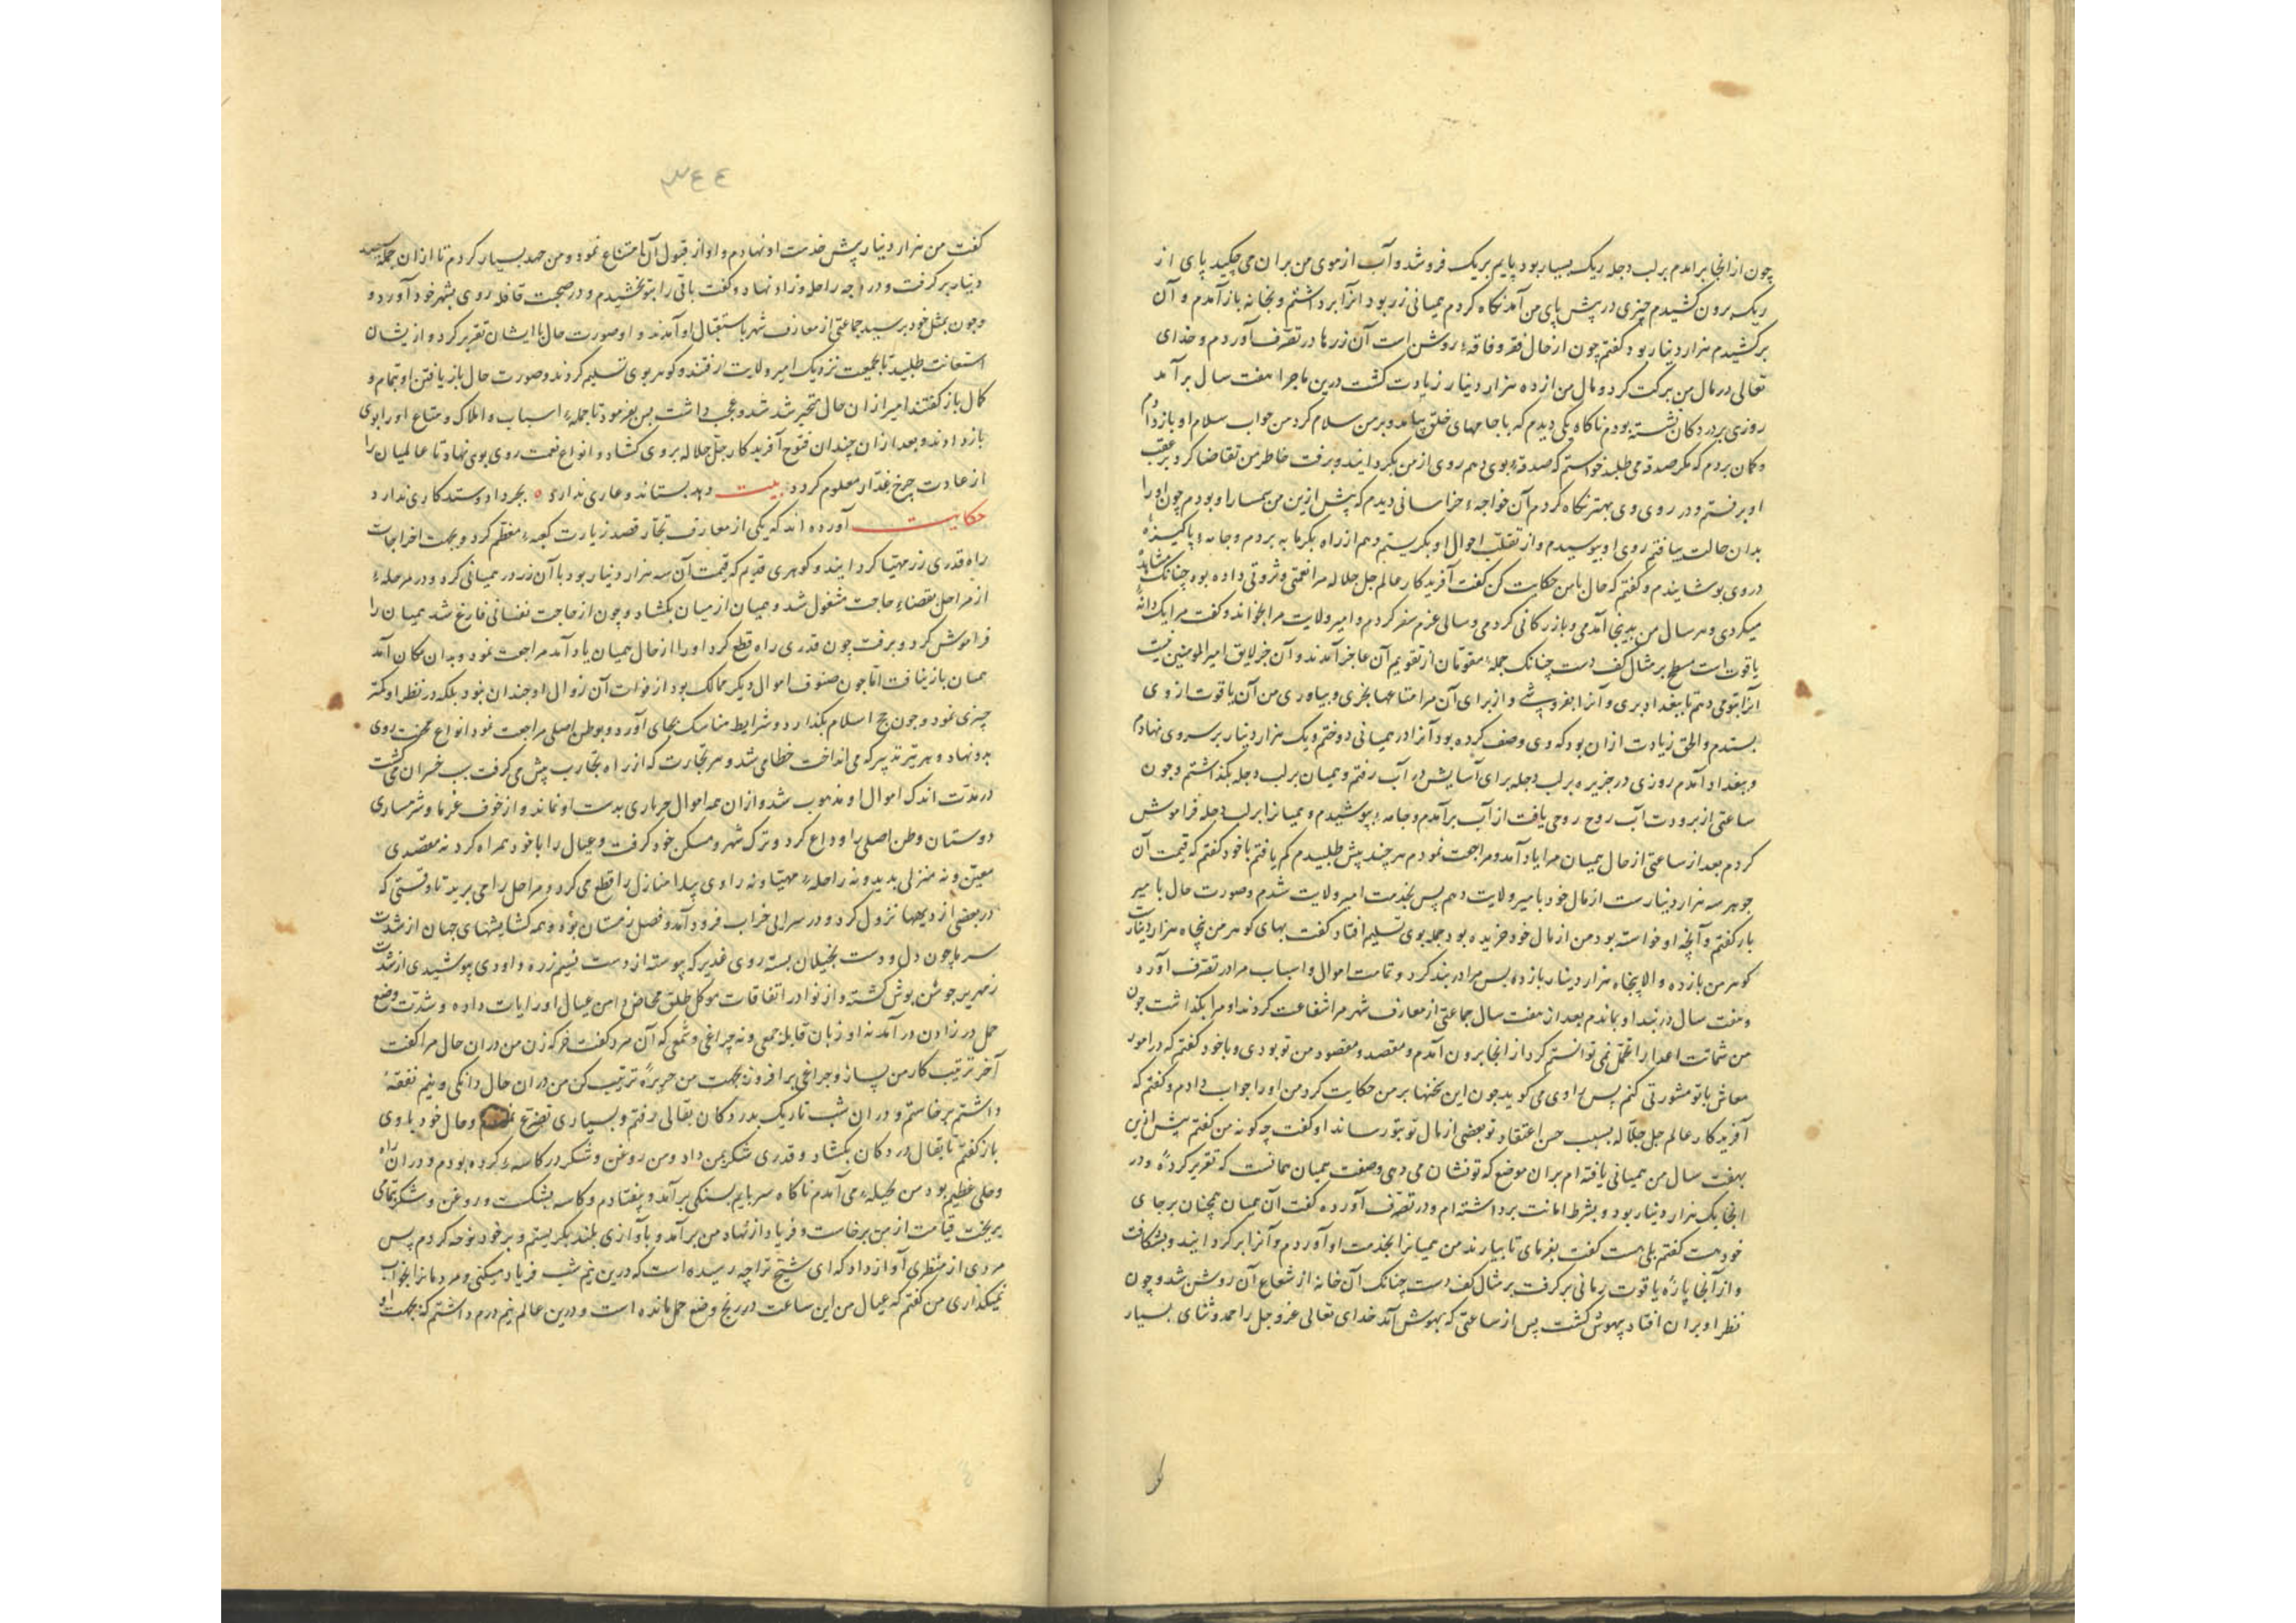 چون از انجا برامدم بر لب دجله ریک بسیار بود پایم بریک فروشد و آب از موی من بران می چکید پای از
ریک برون کشیدم چیزی در پیش پای من آمد نکاه کردم همیانی زر بود انرا برداشتم و بخانه باز آمدم و آن
برکشیدم هزار دینار بود کفتم چون از حال فقر و فاقه روشن است آن زرها در تصرف آوردم و خدای
تعالی در مال من برکت کرد و مال من از ده هزار دینار زیادت کشت درین ماجرا هفت سال برآمد
روزی بر در دکان نشسته بودم ناکاه یکی دیدم که با جامهای خلق بیامد و بر من سلام کرد من جواب سلام او باز دادم
و کمان بردم که مکر صدقه می طلبد خواستم که صدقه بوی دهم روی از من بکردانید و برفت خاطر من تقاضا کرد بر عقب
او برفتم و در روی وی بهتر نکاه کردم آن خواجه خراسانی دیدم که پیش ازین من سمسار او بودم چون او را
بدان حالت بیافتم روی او ببوسیدم و از تقلب احوال او بکریستم و هم از راه بکرمابه بردم و جامه پاکیزه
در وی پوشانیدم و کفتم که حال با من حکایت کن کفت آفریدکار عالم جل جلاله مرا نعمتی و ثروتی داده بود چنانک مشاهده
میکردی و هر سال من بدینجا آمدمی و بازرکانی کردمی و سالی عزم سفر کردم و امیر ولایت مرا بخواند و کفت مرا یک دانه
یاقوت است مسطح بر مثال کف دست چنانک جمله مقومان از تقویم آن عاجز آمدند و آن جز لایق امیر المومنین نیست
آنرا بتو می دهم تا ببغداد بری و آنرا بفروشی و از برای آن مرا متاعها بخری و بیاوری من آن یاقوت از وی
بستدم و الحق زیادت ازان بود که وی وصف کرده بود آنرا در همیانی دوختم و یک هزار دینار بر سر وی نهادم
و ببغداد آمدم روزی در جزیره بر لب دجله برای آسایش در آب رفتم و همیان بر لب دجله بکذاشتم و چون
ساعتی از برودت آب روح روحی یافت از آب برآمدم و جامه بپوشیدم و همیانرا بر لب دجله فراموش
کردم بعد از ساعتی از حال همیان مرا یاد آمد و مراجعت نمودم هر چند پیش طلبیدم کم یافتم با خود کفتم که قیمت آن
جوهر سه هزار دینارست از مال خود با میر ولایت دهم پس بخدمت امیر ولایت شدم و صورت حال با میر
باز کفتم و آنچه او خواسته بود من از مال خود خریده بودم جمله بوی تسلیم افتاد کفت بهای کوهر من پنجاه هزار دینارست
کوهر من بازده والا پنجاه هزار دینار باز ده پس مرا در بند کرد و تمامت اموال و اسباب مرا در تصرف آورد
و هفت سال در بند او بماندم بعد از هفت سال جماعتی از معارف شهر مرا شفاعت کردند او مرا بکذاشت چون
من شماتت اعدا را تحمل نمی توانستم کرد از انجا برون آمدم و مقصد و مقصود من تو بودی و با خود کفتم که در امور
معاش با تو مشورتی کنم پس راوی می کوید چون این سخنها بر من حکایت کرد من او را جواب دادم و کفتم که
آفریدکار عالم جل جلاله بسبب حسن اعتقاد تو بعضی از مال تو بتو رساند او کفت چه کونه من کفتم پیش ازین
بهفت سال من همیانی یافته ام بران موضع که تو نشان می دهی و صفت همیان همانست که تقریر کرده و در
انجا یک هزار دینار بود و بشرط امانت برداشته ام و در تصرف آورده کفت آن همیان همچنان بر جای
خود هست کفتم بلی هست کفت بفرمای تا بیارند من همیانرا بخدمت او آوردم و آنرا برکردانید و بشکافت
و از آنجا پاره یاقوت رمانی برکرفت بر مثال کف دست چنانک آن خانه از شعاع آن روشن شد و چون
نظر او بران افتاد بیهوش کشت پس از ساعتی که بهوش آمد خدای تعالی عز و جل را حمد و ثنای بسیار
٣٤٤
کفت من هزار دینار پیش خدمت او نهادم و او از قبول آن امتناع نمود و من جهد بسیار کردم تا ازان جمله سیصد
دینار برکرفت و در وجه راحله و زاد نهاد و کفت باقی را بتو بخشیدم و در صحبت قافله روی بشهر خود آورد و
و چون بمثل خود برسید جماعتی از معارف شهر باستقبال او آمدند و او صورت حال با ایشان تقریر کرد و از یشان
استعانت طلبید تا بجمعیت نزدیک امیر ولایت رفتند و کوهر بوی تسلیم کردند و صورت حال باز یافتن او بتمام و
کمال باز کفتند امیر ازان حال متحیر شد و عجب داشت پس بفرمود تا جمله اسباب و املاک و متاع او را بوی
باز دادند و بعد ازان چندان فتوح آفریدکار جل جلاله بروی کشاد و انواع نعمت روی بوی نهاد تا عالمیان را
از عادت چرخ غدار معلوم کردد بیت دهد بستاند و عاری ندارد ٥ بجز داد و ستد کاری ندارد
حکایت آورده اند که یکی از معارف تجار قصد زیارت کعبه معظم کرد و بجهت اخراجات
راه قدری زر مهیا کردانید و کوهری قدیم که قیمت آن سه هزار دینار بود با آن زر در همیانی کرد و در مرحله
از مراحل بقضاء حاجت مشغول شد و همیان از میان بکشاد و چون از حاجت نفسانی فارغ شد همیان را
فراموش کرد و برفت چون قدری راه قطع کرد او را از حال همیان یاد آمد مراجعت نمود و بدان مکان آمد
همیان باز نیافت اما چون صنوف اموال دیکر ممالک بود از فوات آن زوال او چندان نبود بلکه در نظر او کمتر
چیزی نمود و چون حج اسلام بکذارد و شرایط مناسک بجای آورد و بوطن اصلی مراجعت نمود انواع محنت روی
بدو نهاد و هر تیر تدبیر که می انداخت خطا می شد و هر تجارت که از راه تجارب پیش می کرفت سبب خسران می کشت
در مدت اندک اموال او منهوب شد و ازان همه اموال بدست او نماند و از خوف غرما و شرمساری
دوستان وطن اصلی را وداع کرد و ترک شهر و مسکن خود کرفت و عیال را با خود همراه کرد نه مقصدی
معین و نه منزلی پدید و نه راحله مهیا و نه راوی پیدا منازل را قطع می کرد و مراحل را می برید تا وقتی که
در بعضی از دیهها نزول کرد و در سرایی خراب فرود آمد و فصل زمستان بود و همه کشایشهای جهان از شدت
سرما چون دل و دست بخیلان بسته روی غدیر که پیوسته از دست نسیم زره داودی پوشیدی از شدت
زمهریر جوشن پوش کشته و از نوادر اتفاقات موکل طلق مخاض دامن عیال او را یاب داده و شدت وضع
حمل در زادن در آمد نه او زبان قابله جمعی و نه چراغی و شمعی که آن مرد کفت خر که زن من دران حال مرا کفت
آخر ترتیب کار من بساز و چراغی برافروز بجهت من حریره ترتیب کن من دران حال دانکی و نیم نفقه
داشتم برخاستم و دران شب تاریک بدر دکان بقالی رفتم و بسیاری تضرع نمودم و حال خود با وی
باز کفتم تا بقال در دکان بکشاد و قدری شکر بمن داد و من روغن و شکر در کاسه کرده بودم و دران راه
وحلی عظیم بود من بحیله می آمدم ناکاه سر پایم بسنکی برآمد و بیفتادم و کاسه بشکست و روغن و شکر بتمامی
بریخت قیامت از من برخاست و فریاد از نهاد من برآمد و بآوازی بلند بکریستم و بر خود نوحه کردم پس
مردی از منظری آواز داد که ای شیخ ترا چه رسیده است که درین نیم شب فریاد میکنی و مردمانرا بخواب
نمیکذاری من کفتم که عیال من این ساعت در رنج وضع حمل مانده است و درین عالم نیم درم داشتم که بجهت او